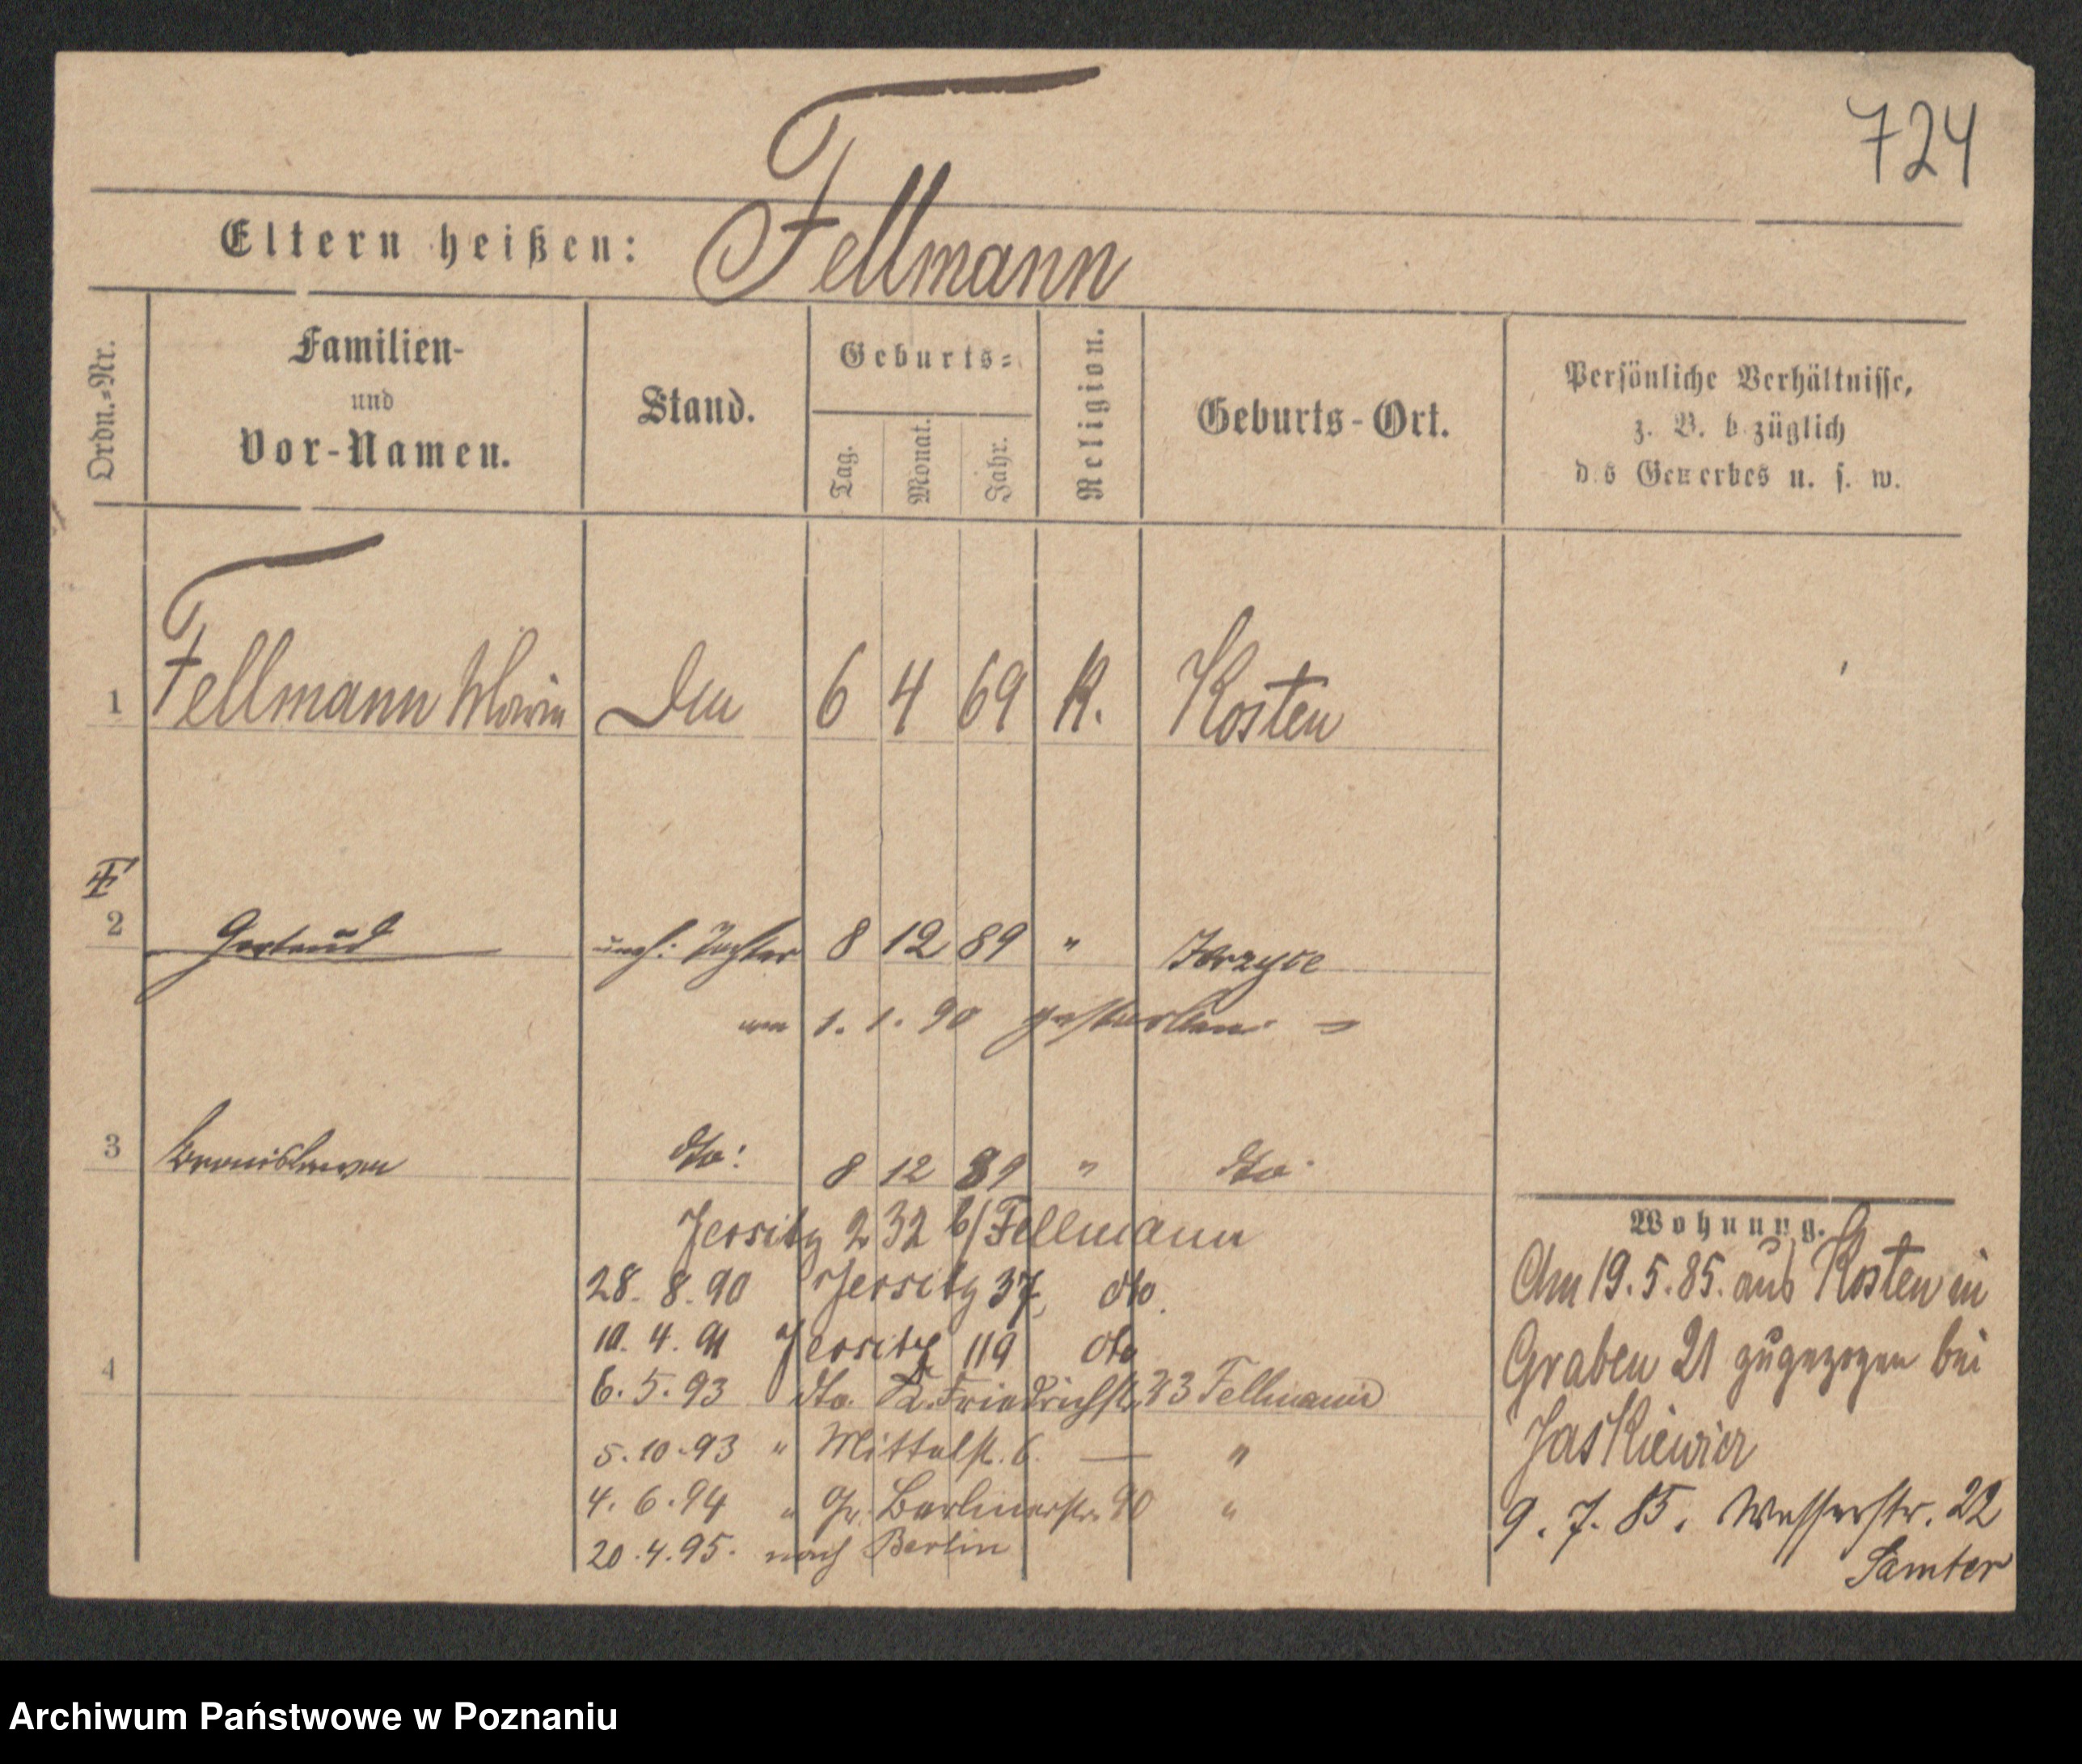 724
Eltern heißen: Fellmann
Ordn.-Nr.
Familien-
und
Vor-Namen.
Stand.
Geburts-
Tag.
Monat.
Jahr.
Religion.
Geburts-Ort.
Persönliche Verhältnisse,
z. B. b züglich
d s Gewerbes u. s. w.
1 Fellmann Marie 6 4 69 K. Kosten
2 Gertrud uneh: Tochter 8 12 89 " Jerzyce
am 1. 1. 90 gestorben
3 Bronislawa dto: 8 12 89 " dto
Jersitz 232 b/Fellmann
28. 8. 90 Jersitz 37, dto.
10. 4. 91 Jersitz 119 dto
4
6. 5. 93 dto. Friedrichst. 33 Fellmann
5. 10. 93 " Mittelst. 6. — "
4. 6. 94 " Gr. Berlinerstr. 90 "
20. 4. 95. nach Berlin
Wohnung.
Am 19. 5. 85. aus Kosten in
Graben 21 zugezogen bei
Jaskiewicz
9. 7. 85. Wasserstr. 22
Samter
Archiwum Państwowe w Poznaniu